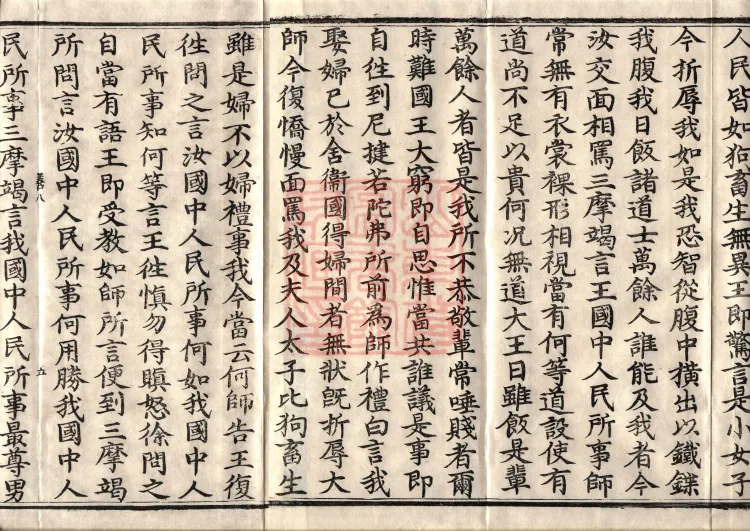 人民皆如狗畜生無異王即驚言是小女子
今折辱我如是我恐智從腹中橫出以鐵鍱
我腹我日飯諸道士萬餘人誰能及我者今
汝交面相罵三摩竭言王國中人民所事師
常無有衣裳裸形相視當有何等道設使有
道尚不足以貴何況無道大王日雖飯是輩
萬餘人者皆是我所不恭敬輩常唾賤者爾
時難國王大窮即自思惟當共誰議是事即
自徃到尼揵若陀弗所前為師作禮白言我
娶婦已於舍衞國得婦間者無狀旣折辱大
師今復憍慢面罵我及夫人太子比狗畜生
雖是婦不以婦禮事我今當云何師告王復
徃問之言汝國中人民所事何如我國中人
民所事知何等言王徃慎勿得瞋怒徐問之
自當有語王即受教如師所言便到三摩竭
所問言汝國中人民所事何用勝我國中人
五
民所事三摩竭言我國中人民所事最尊男